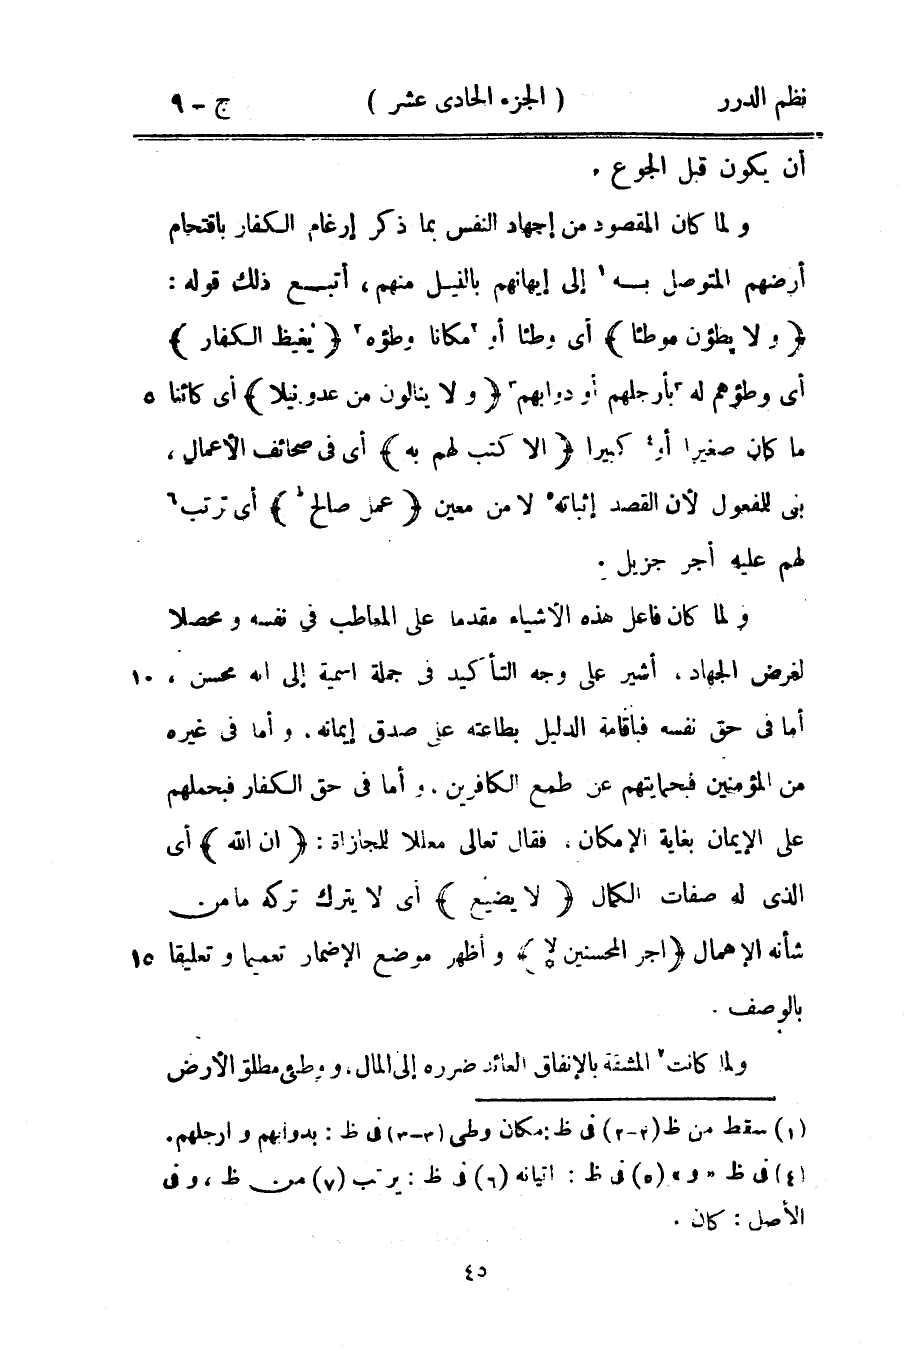 نظم الدرر ( الجزء الحادى عشر ) ج - ٩
أن يكون قبل الجوع .
و لما كان المقصود من إجهاد النفس بما ذكر إرغام الكفار باقتحام
أرضهم المتوصل به ١ إلى إيهانهم بالنيل منهم ، أتبع ذلك قوله :
﴿ و لا يطؤن موطئا ﴾ أى وطئا أو ٢مكانا وطؤه٢ ﴿ يغيظ الكفار ﴾
أى وطؤهم له ٣بأرجلهم أو دوابهم٣ ﴿ و لا ينالون من عدو نيلا ﴾ أى كائنا ٥
ما كان صغيرا أو٤ كبيرا ﴿ الا كتب لهم به ﴾ أى فى صحائف الأعمال ،
بنى للفعول لأن القصد إثباته٥ لا من معين ﴿ عمل صالح ط ﴾ أى ترتب٦
لهم عليه أجر جزيل .
و لما كان فاعل هذه الأشياء مقدما على المعاطب في نفسه و محصلا
لغرض الجهاد ، أشير على وجه التأكيد فى جملة اسمية إلى أنه محسن ، ١٠
أما فى حق نفسه فباقامة الدليل بطاعته على صدق إيمانه ، و أما فى غيره
من المؤمنين فبحمايتهم عن طمع الكافرين ، و أما فى حق الكفار فبحملهم
على الإيمان بغاية الإمكان ، فقال تعالى معللا للجازاة : ﴿ ان الله ﴾ أى
الذى له صفات الكمال ﴿ لا يضيع ﴾ أى لا يترك تركه ما من
شأنه الإهمال ﴿ اجر المحسنين لا ﴾ و أظهر موضع الإضمار تعميما و تعليقا ١٥
بالوصف .
ولما كانت٧ المشقة بالإنفاق العائد ضرره إلى المال ، و وطئ مطلق الأرض
(١) سقط من ظ (٢-٢) فى ظ : مكان وطى (٣-٣) فى ظ : بدوابهم و ارجلهم .
(٤) فى ظ « و » (٥) فى ظ : اتيانه (٦) فى ظ : يرتب (٧) من ظ ، و فى
الأصل : كان .
٤٥